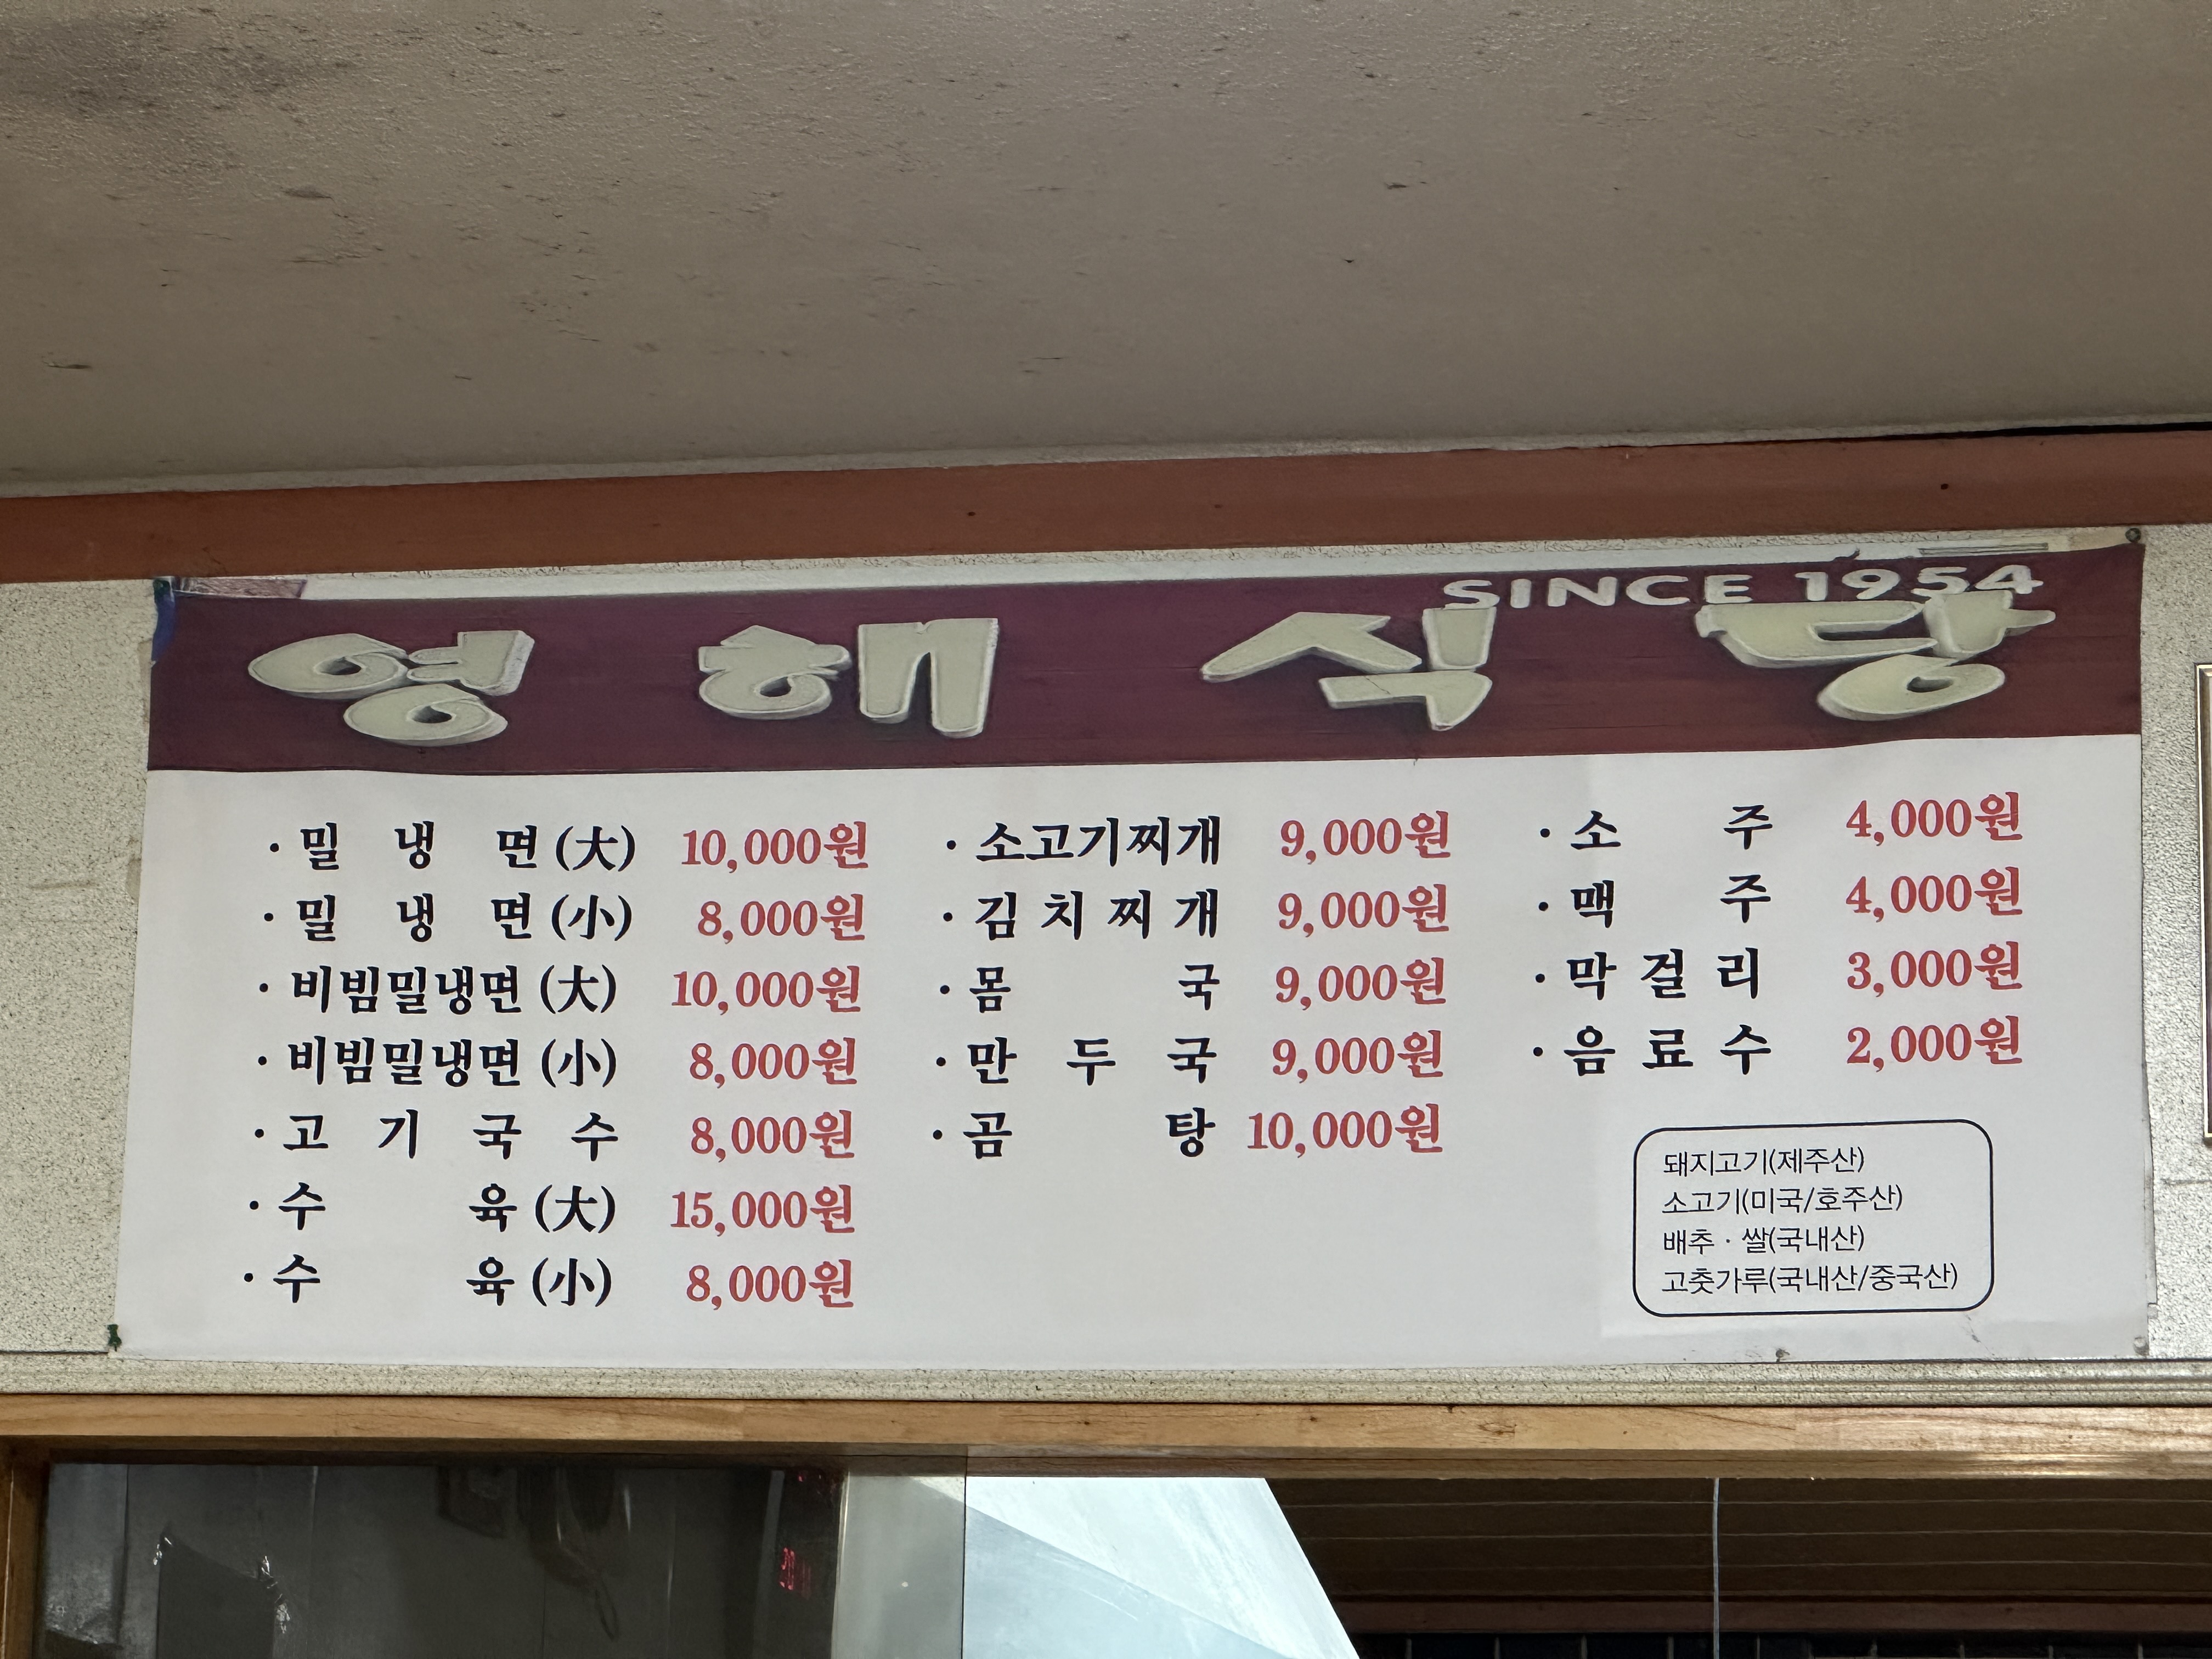 SINCE 1954
영해식당
· 밀 냉 면 (大) 10,000원
· 밀 냉 면 (小) 8,000원
· 비빔밀냉면 (大) 10,000원
· 비빔밀냉면 (小) 8,000원
· 고 기 국 수 8,000원
· 수 육 (大) 15,000원
· 수 육 (小) 8,000원
· 소고기찌개 9,000원
· 김 치 찌 개 9,000원
· 몸 국 9,000원
· 만 두 국 9,000원
· 곰 탕 10,000원
· 소 주 4,000원
· 맥 주 4,000원
· 막 걸 리 3,000원
· 음 료 수 2,000원
돼지고기(제주산)
소고기(미국/호주산)
배추 · 쌀(국내산)
고춧가루(국내산/중국산)